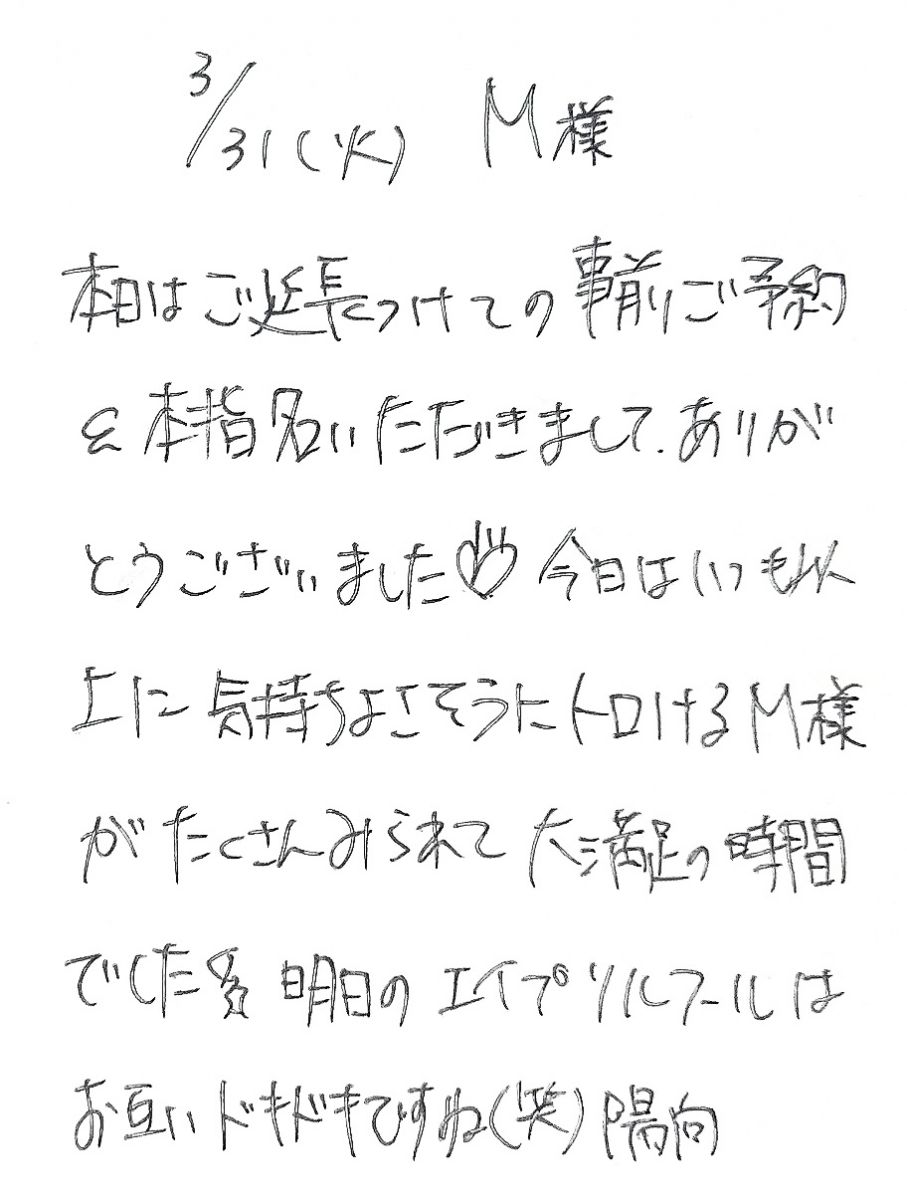 3/31(火) M様
本日はご延長つけての事前ご予約
&本指名いただきまして、ありが
とうございました♡今日はいつも以
上に気持ちよこそうにトロけるM様
がたくさんみられて大満足の時間
でした 明日のエイプリルフールは
お互いドキドキですね(笑)陽向